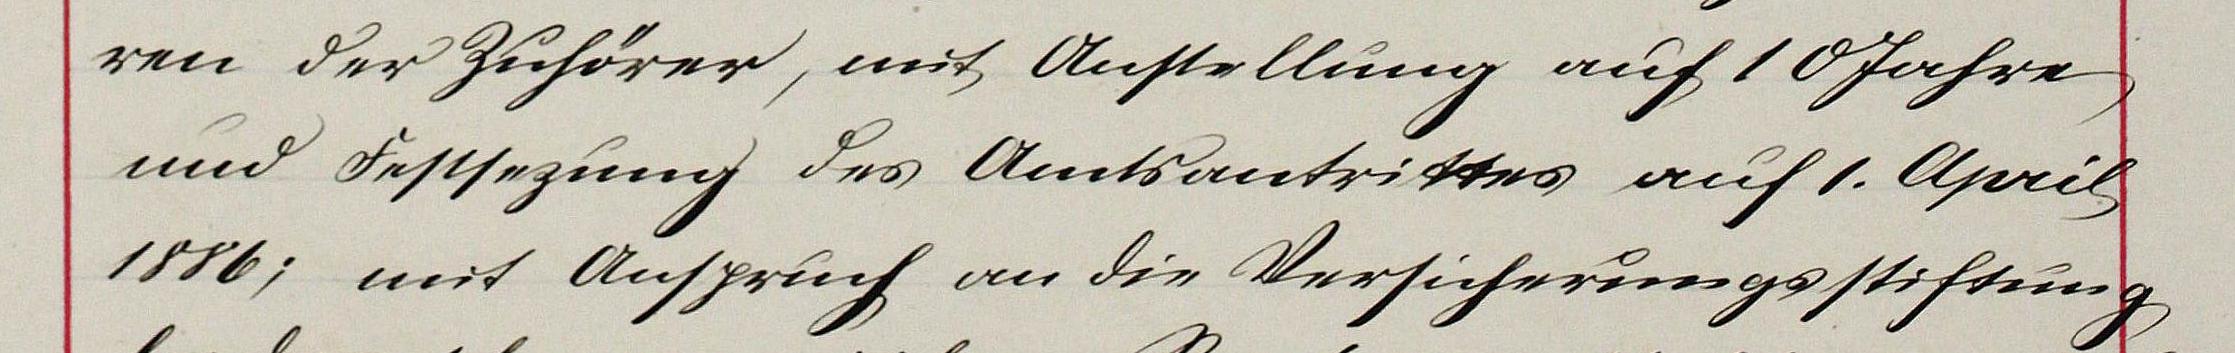 ren der Zuhörer, mit Anstellung auf 10 Jahre
und Festsezung des Amtsantrittes auf 1. April
1886; mit Anspruch an die Versicherungsstiftung